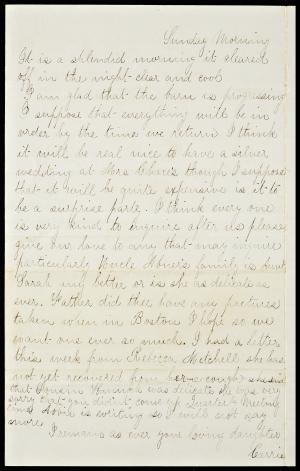 Sunday Morning
It is a splendid morning it cleared
off in the night clear and cool
I am glad that the barn is progressing
I suppose that everything will be in
order by the time we return I think
it will be real nice to have a silver
wedding at Nora though I suppose
that it will be quite expensive is it to
be a surprise parte. I think every one
is very kind to enquire after us please
give our love to any that may enquire
particularly Uncle Abner's family is Aunt
Sarah any better or is she as delicate as
ever. Father did thee have any pictures
taken when in Boston I hope so we
want one ever so much. I had a letter
this week from Rebecca Mitchell she has
not yet recovered from her cough she said
that Cousin was delicate She was very
sorry that you didn't come up Quarterly Meeting
time Abbie is writing so I will not say
more
I remain as ever your loving daughter
Carrie